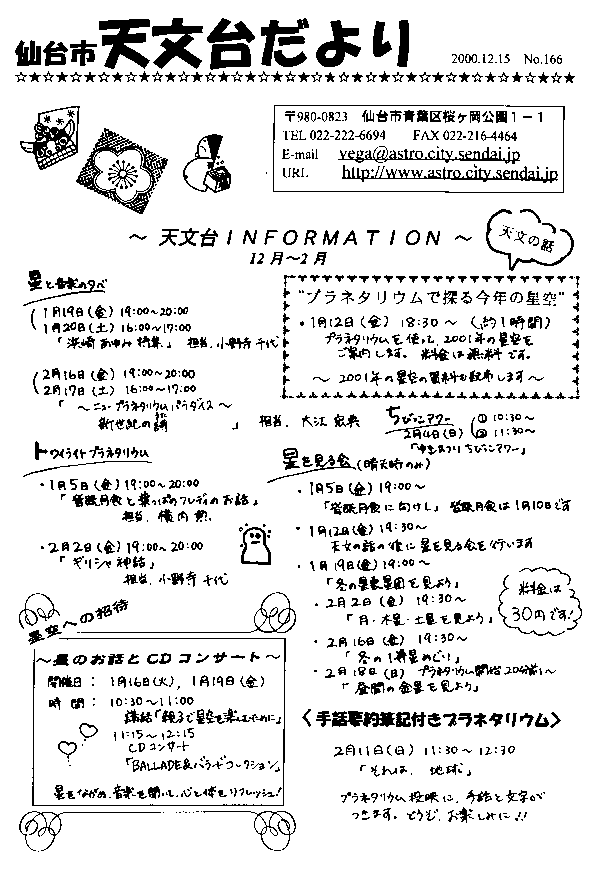 仙台市 天文台だより 2000.12.15 No.166
☆★☆★☆★☆★☆★☆★☆★☆★☆★☆★☆★☆★☆★☆★☆★☆★☆★☆★☆★☆
〒980-0823 仙台市青葉区桜ヶ岡公園1-1
TEL 022-222-6694 FAX 022-216-4464
E-mail vega@astro.city.sendai.jp
URL http://www.astro.city.sendai.jp
～ 天文台INFORMATION ～
12月～2月
天文の話
星と音楽の夕べ
1月19日(金) 19:00~20:00
1月20日(土) 16:00~17:00
「浜崎あゆみ特集」 担当.小野寺千代
2月16日(金) 19:00~20:00
2月17日(土) 16:00~17:00
「～ニュープラネタリウムパラダイス～
新世紀の詩」 担当.大江宏典
"プラネタリウムで探る今年の星空"
・1月12日(金) 18:30～ (約1時間)
プラネタリウムを使って、2001年の星空を
ご案内します。料金は無料です。
～ 2001年の星空の資料も配布します～
ちびっこアワー
2月4日(日) ① 10:30～
② 11:30～
「ちびっこアワー」
トワイライトプラネタリウム
・1月5日(金) 19:00~20:00
「皆既月食と葉っぱのフレディのお話」
担当.横内
・2月2日(金) 19:00~20:00
「ギリシャ神話」
担当.小野寺千代
星を見る会(晴天時のみ)
・1月5日(金) 19:00～
「皆既月食に向けて」 皆既月食は1月10日です
・1月12日(金) 19:30～
天文の話の後に星を見る会を行います
・1月19日(金) 19:00～
「冬の星雲星団を見よう」
・2月2日(金) 19:30～
「月・木星・土星を見よう」
・2月16日(金) 19:30～
「冬の1等星めぐり」
・2月18日(日) プラネタリウム開始20分前～
「昼間の金星を見よう」
料金は
30円です!
星空への招待
～星のお話とCDコンサート～
開催日: 1月16日(火), 1月19日(金)
時間: 10:30~11:00
講話「親子で星空を楽しむために」
11:15~12:15
CDコンサート
「BALLADE&バラードコレクション」
星をながめ、音楽を聞いて、心と体をリフレッシュ!
〈手話要約筆記付きプラネタリウム〉
2月11日(日) 11:30~12:30
「それは、地球」
プラネタリウム投映に、手話と文字が
つきます。どうぞ、お楽しみに!!